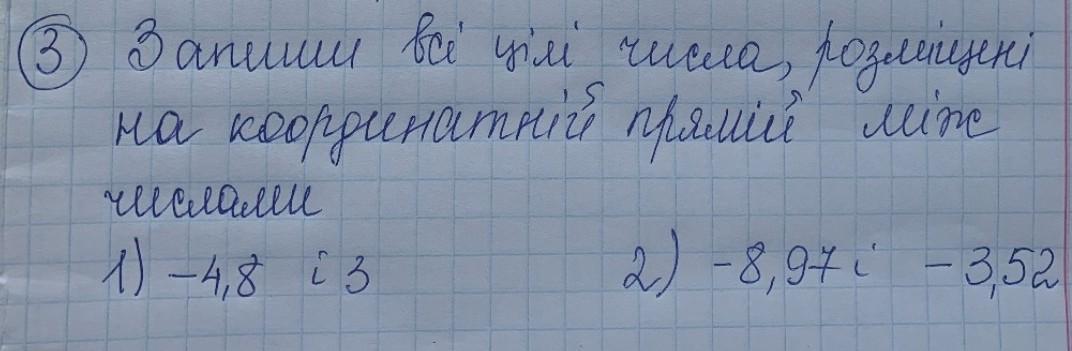 3 Запиши всі цілі числа, розміщені
на координатній прямій між
числами
1) -4,8 і 3 2) -8,97 і -3,52